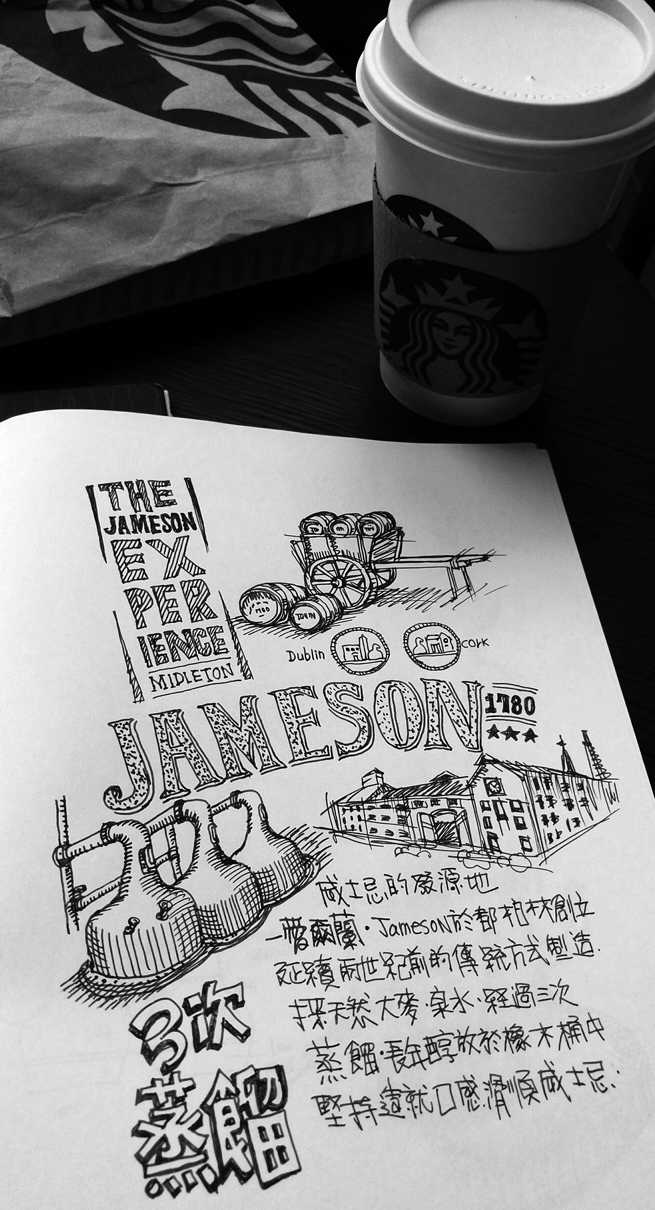 THE
JAMESON
EX
PER
IENCE
MIDLETON
Dublin
cork
JAMESON
1780
威士忌的發源地
愛爾蘭·Jameson於都柏林創立
延續兩世紀前的傳統方式製造.
採天然大麥·泉水·經過三次
蒸餾·長年醇放於橡木桶中
堅持造就口感滑順威士忌:
3次
蒸餾